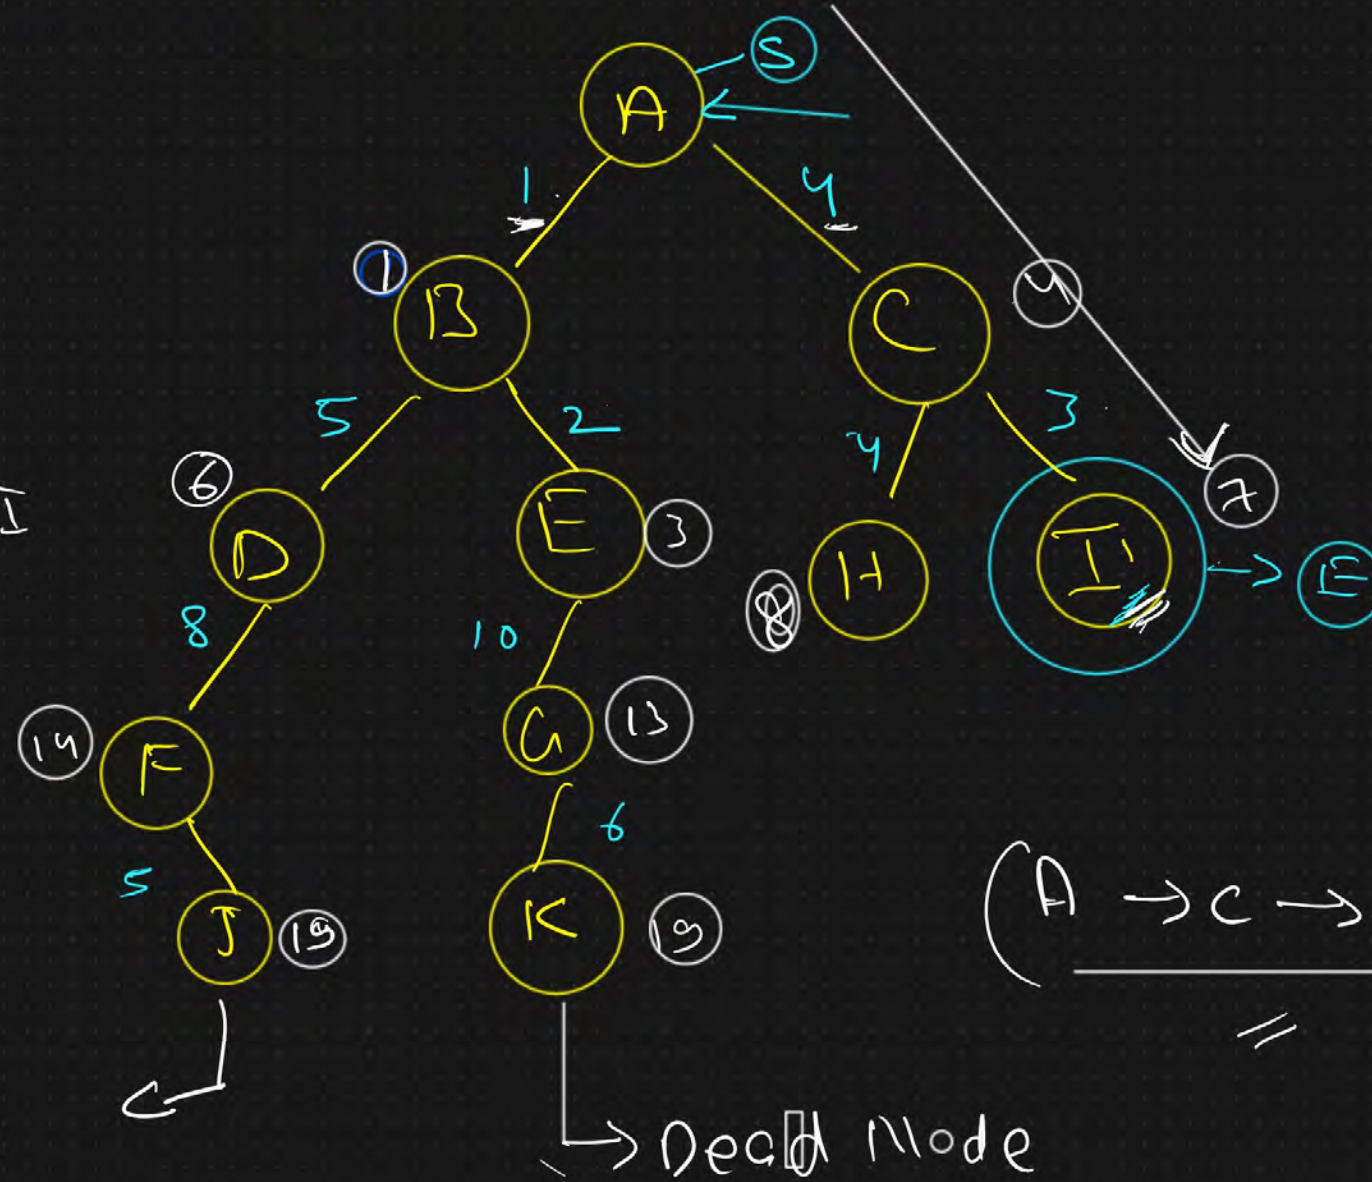 S
A
1 4
1 B C 4
5 2 4 3
6 D E 3 8 H I 7 E
I
8 10
14 F G 13
5 6
J 19 K 19
(A → C →
→ Dead Node